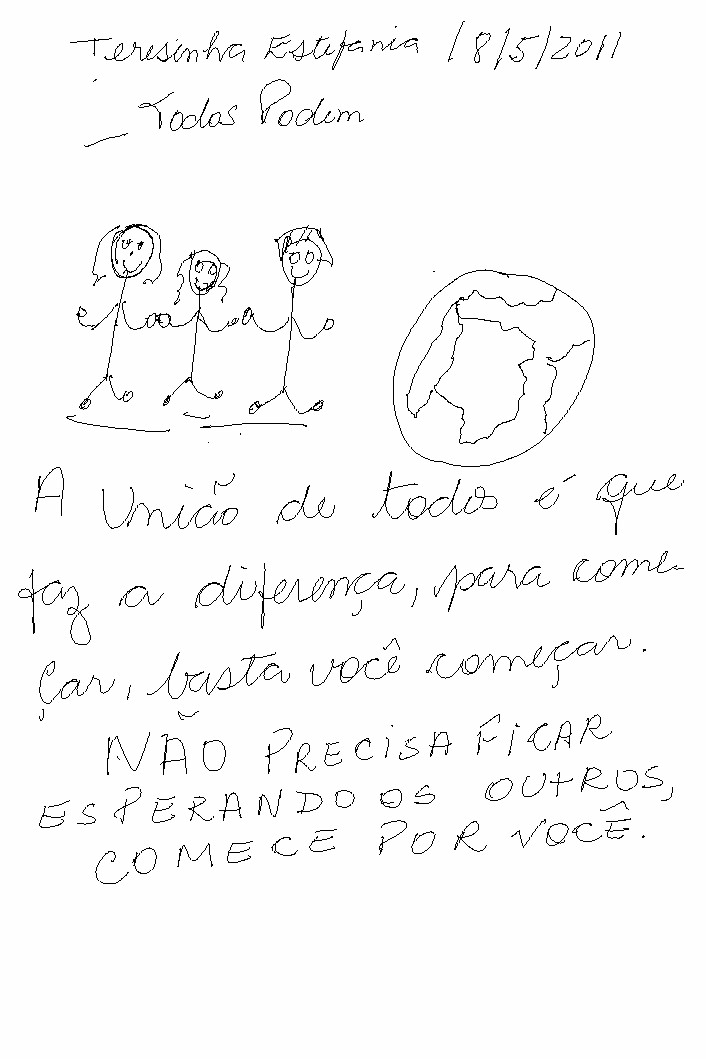 Teresinha Estefania 18/5/2011
_ Todos Podem
A União de todos é que
faz a diferença, para come-
çar, basta você começar.
NÃO PRECISA FICAR
ESPERANDO OS OUTROS,
COMECE POR VOCÊ.